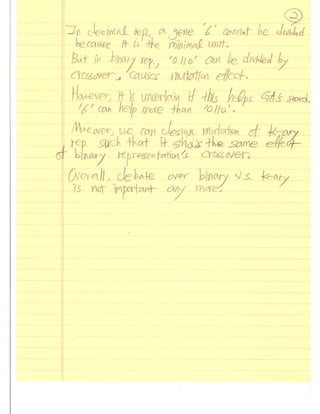 2
In decimal rep, a gene '6' cannot be divided
because it is the minimal unit.
But in binary rep, '0110' can be divided by
crossover, causes mutation effect.
However, it is uncertain if this helps GA's search.
'6' can help more than '0110'.
Moreover, we can design mutation of k-ary
rep. such that it shows the same effect
of binary representation's crossover.
Overall, debate over binary v.s. k-ary
is not important any more.